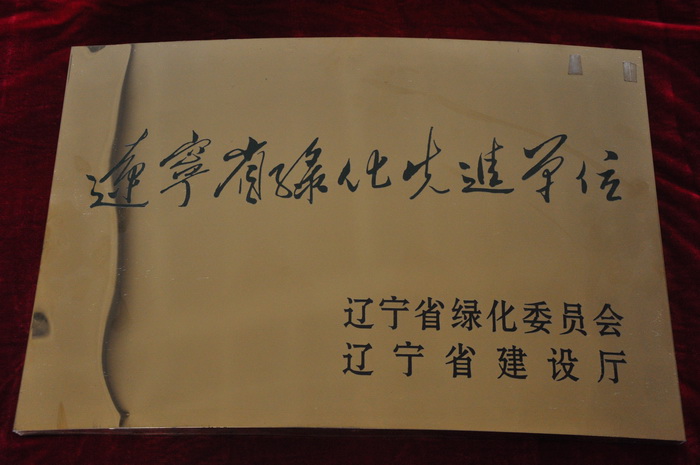 遼寧省绿化先進单位
辽宁省绿化委员会
辽宁省建设厅